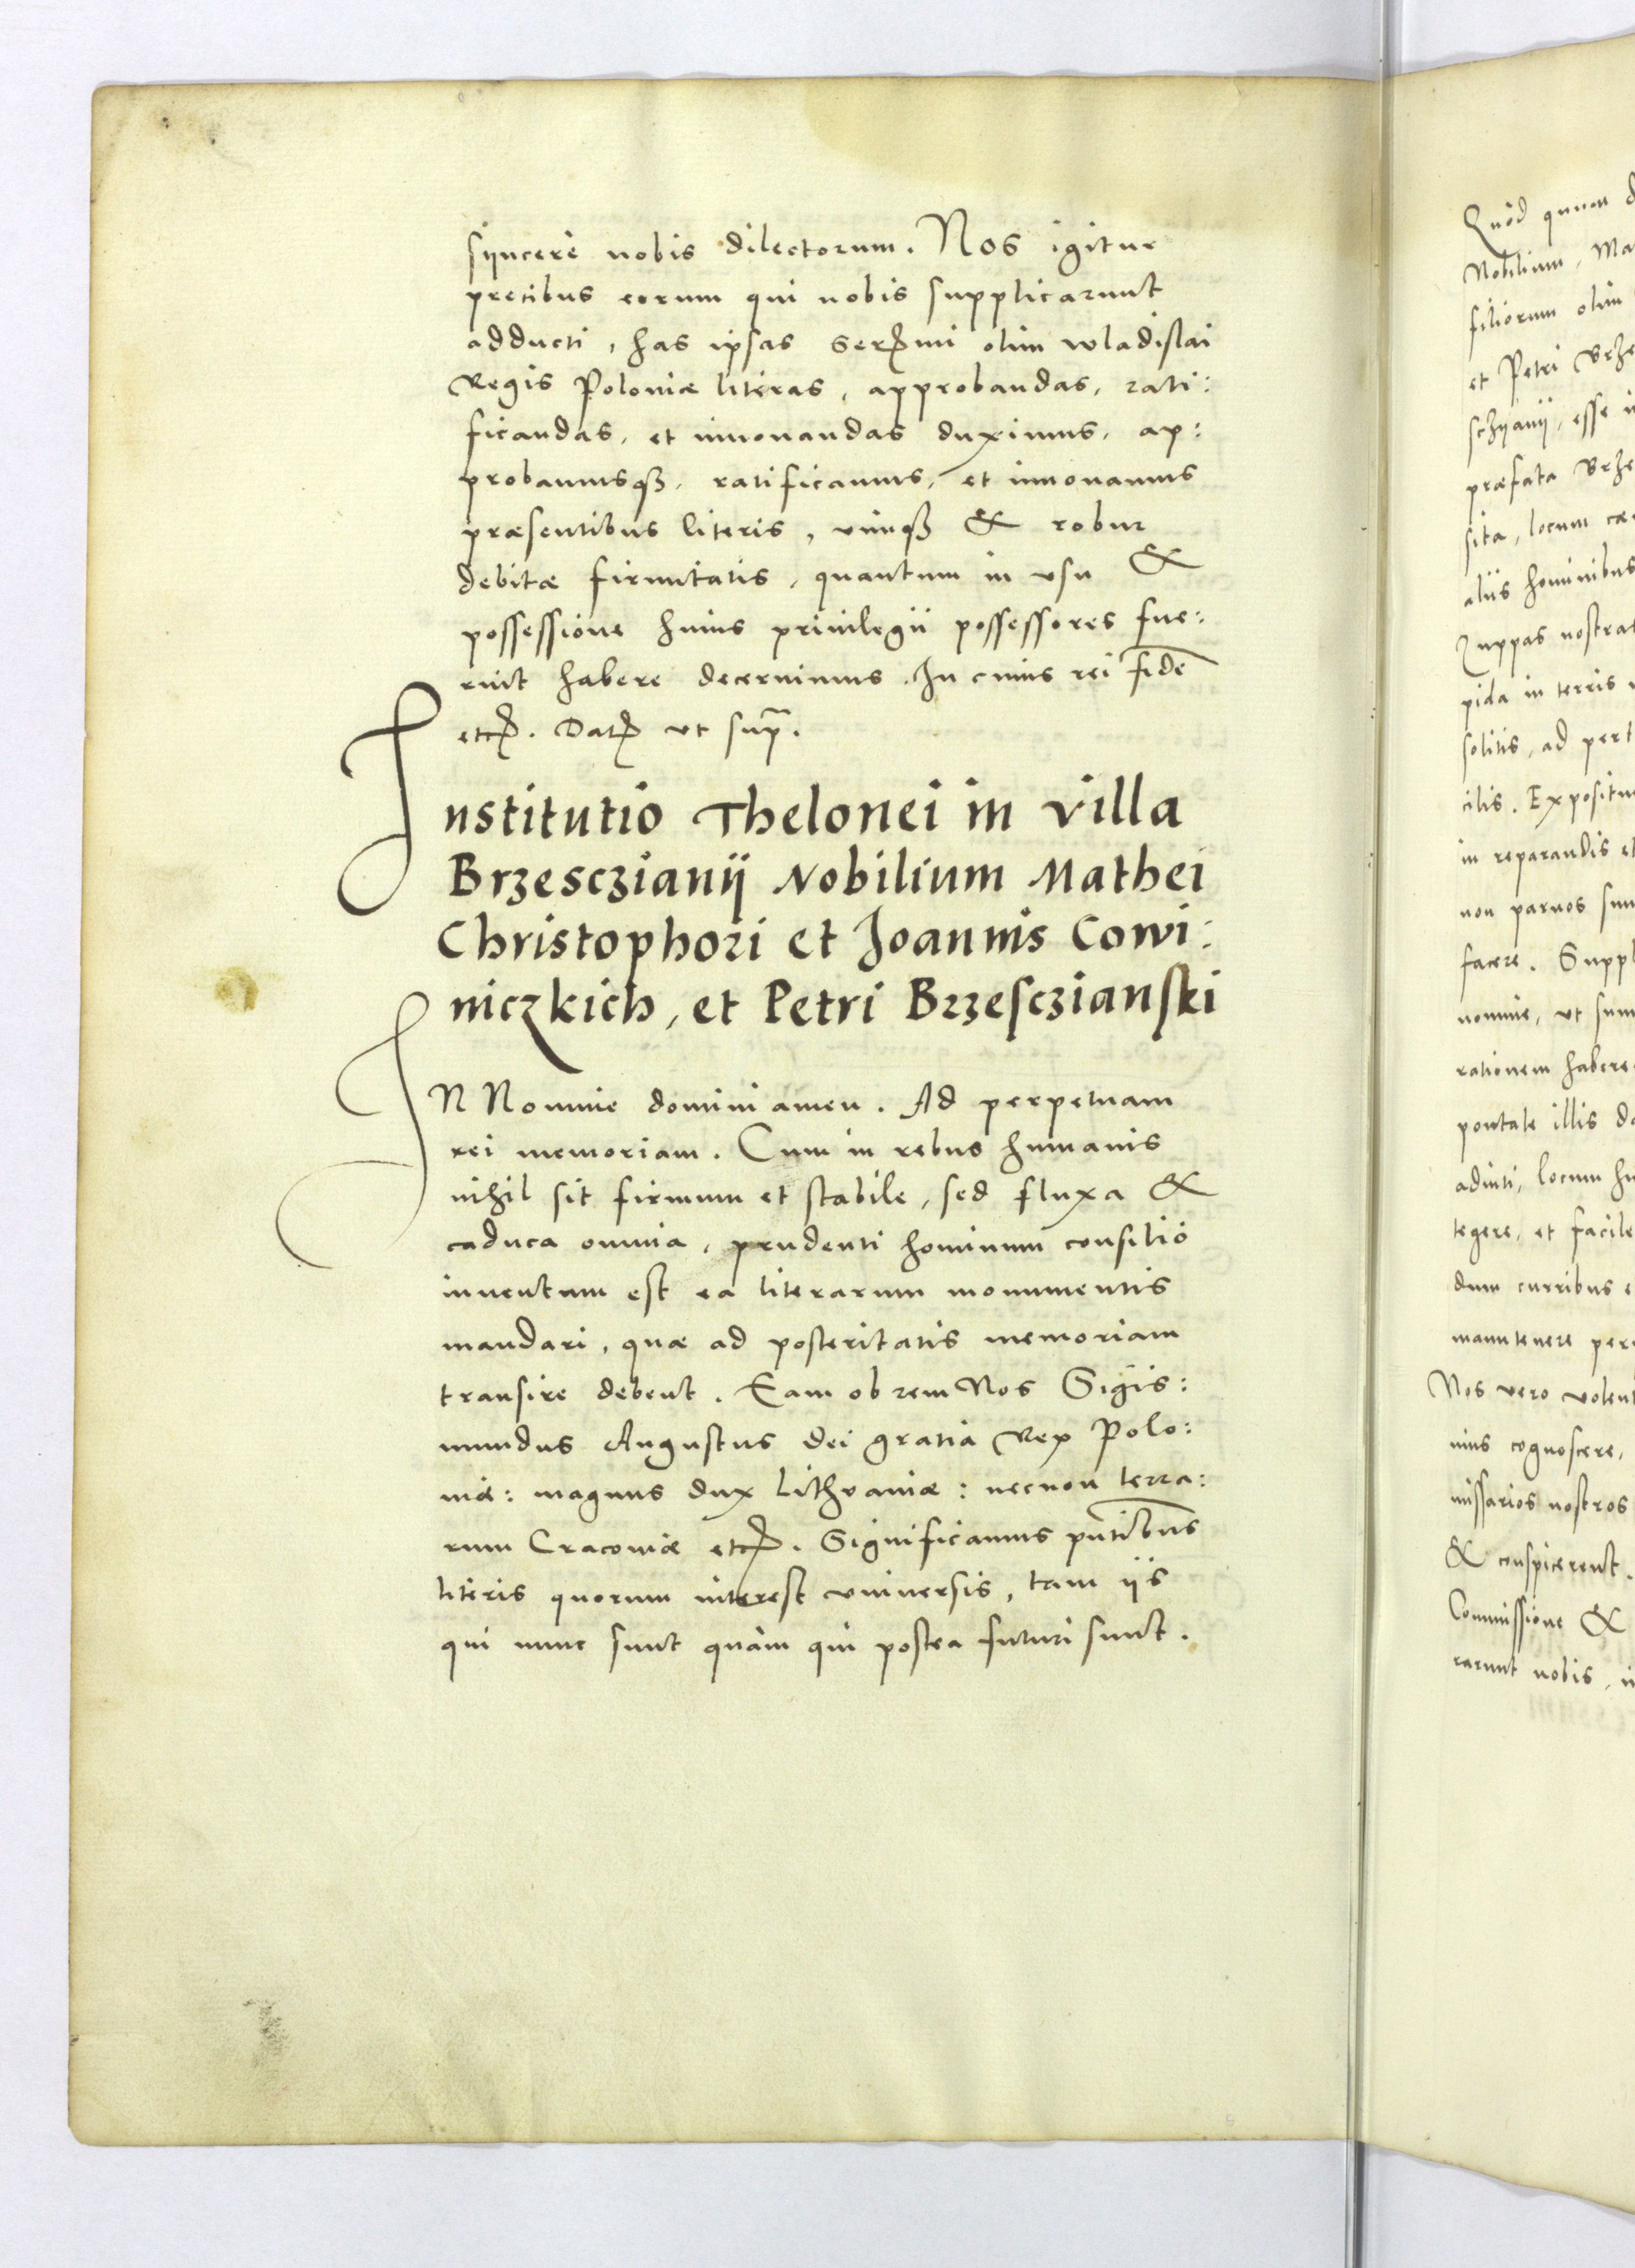 sÿncerè nobis dilectorum. Nos igitur
precibus eorum qui nobis supplicarunt
adducti, has ipsas Sere̅mi olim wladislai
Regis Poloniæ literas, approbandas, rati:
ficandas, et innouandas duximus, ap:
probamusq3, ratificamus, et innouamus
præsentibus literis, vimq3 & robur
debitæ firmitatis, quantum in vsu &
possessione huius priuilegii possessores fue:
rint habere decernimus. In cuius rei fide̅
etc. Dat vt sup̅.
Institutio Thelonei in villa
Brzescziani̇j Nobilium Mathei
Christophori et Joannis Cowi:
niczkich, et Petri Brzesczianski
IN Nomine domini amen. Ad perpetuam
rei memoriam. Cum in rebus humanis
nihil sit firmum et stabile, sed fluxa &
caduca omnia, prudenti hominum consilio
inuentum est ea literarum monumentis
mandari, quæ ad posteritatis memoriam
transire debent. Eam ob rem Nos Sigis:
mundus Augustus dei gratia Rex Polo:
niæ: magnus dux Lithvaniæ: necnon terra:
rum Cracoviæ etc. Significamus pn̅tibus
literis quorum interest vniuersis, tam iis
qui nunc sunt quàm qui postea futuri sunt.
Quòd quum
Nobilium, Ma
filiorum olim
et Petri Brze
schÿanij, esse
præfata Brze
sita, locum
aliis hominibus
Zuppas nostras
pida in terris
solitis, ad pert
cilis. Expositu
in reparandis et
non paruos sum
facere. Suppl
nomine, vt sum
rationem habere
pontale illis
adiuti, locum hu
tegere, et facile
dum curribus
manutenere per
Nos vero volent
nius cognoscere,
missarios nostros
& conspicerent.
Commissione &
rarunt nobis,